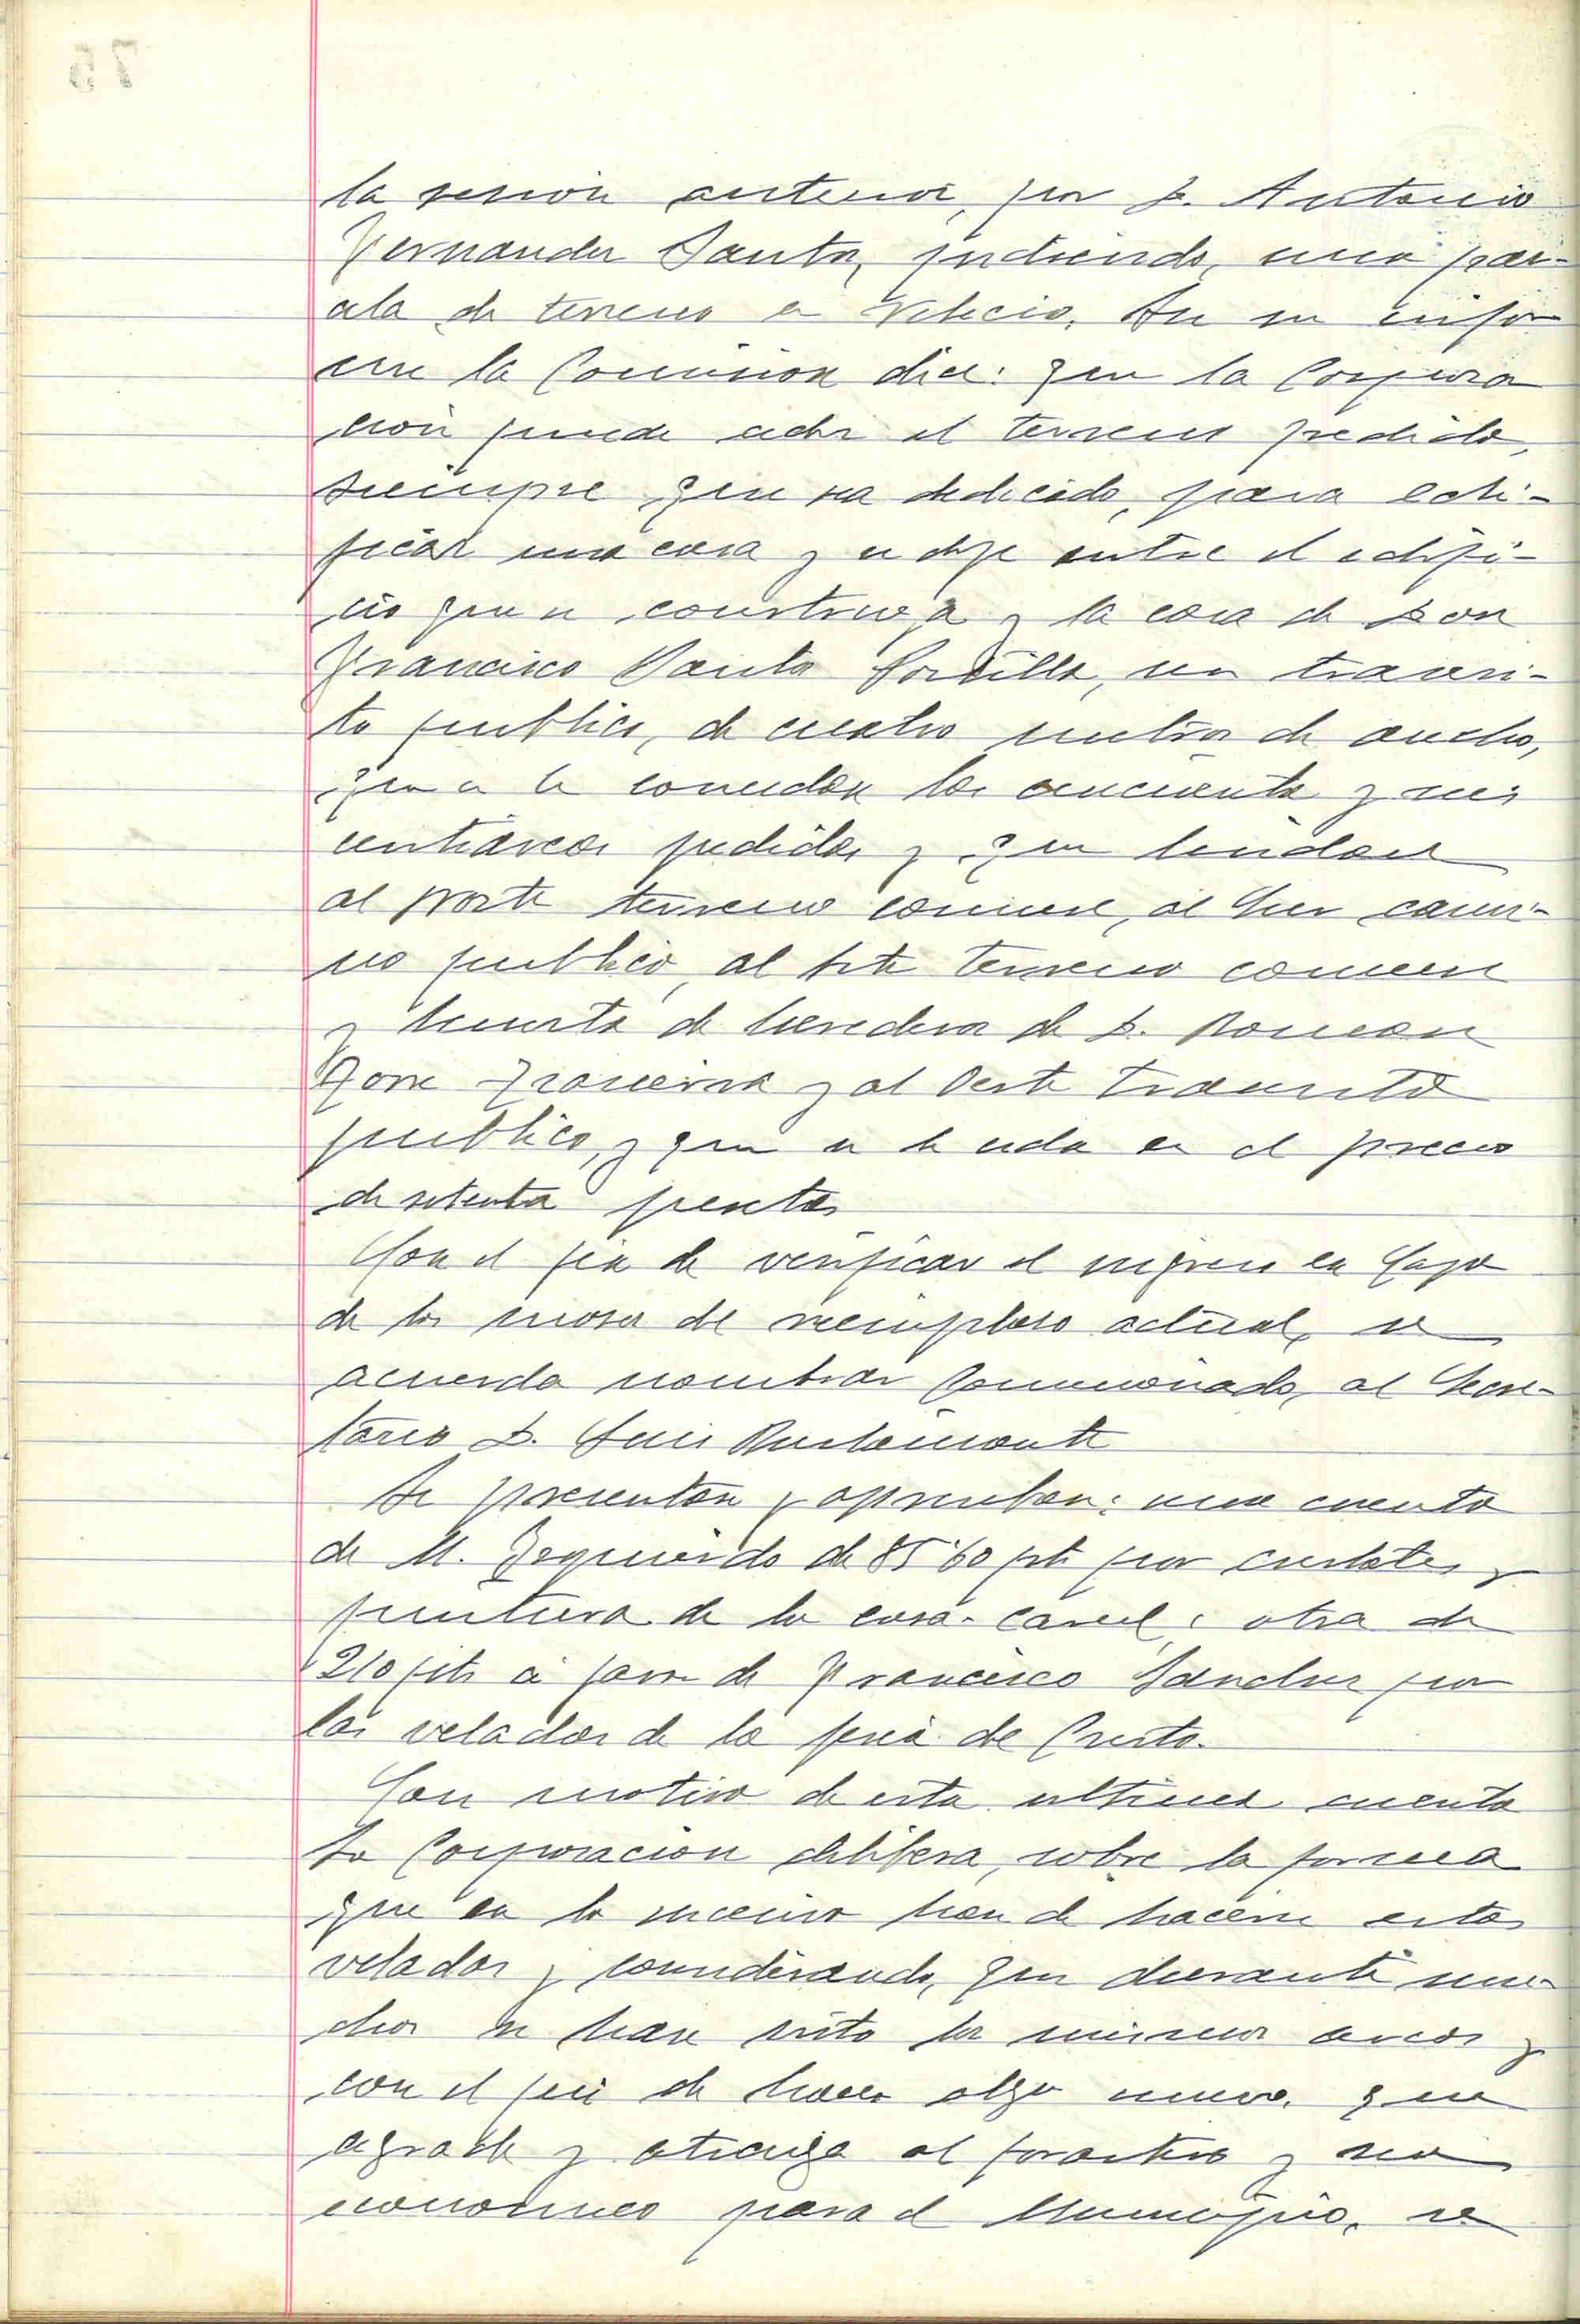 la sesión anterior, por D. Antonio
Fernandez Santa, pidiendo, una par-
cela de terreno a Velecio. En su infor
me la Comision dice: que la Corpora
ción puede ceder el terreno pedido,
siempre que sea dedicado, para edi-
ficar una casa y se deje entre el edifi-
cio que se construya y la casa de Don
Francisco Santa, un transi-
to publico, de cuatro metros de ancho,
que se le concedan las cincuenta y seis
centiáreas pedidas y que lindan
al Norte terreno comun, al Sur cami-
no publico, al Este terreno comun
y huerta de herederos de D. Roman
y al Oeste transito
publico, y que se le ceda en el precio
de setenta pesetas
Con el fin de verificar el ingreso en Caja
de los mozos del reemplazo actual, se
acuerda nombrar Comisionado, al Secre-
tario D. Luis Bustamante
Se presentan y aprueban: una cuenta
de M. Izquierdo de 85'60 pts por cristales y
pintura de la casa-carcel; otra de
210 pts á favor de Francisco Sanchez por
las veladas de la feria de Cristo.
Con motivo de esta ultima cuenta
la Corporacion delibera, sobre la forma
que en lo sucesivo han de hacerse estas
veladas y considerando, que durante mu-
chos se han visto los mismos arcos y
con el fin de hacer algo nuevo, que
agrade y atraiga al forastero y sea
economico para el Municipio, se